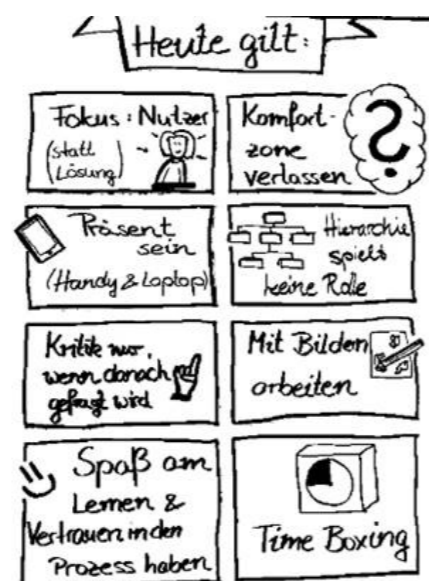 Heute gilt:
Fokus: Nutzer
(statt
Lösung)
Komfort-
zone
verlassen
?
Präsent
sein
(Handy & Laptop)
Hierarchie
spielt
keine Rolle
Kritik nur,
wenn danach
gefragt wird
Mit Bildern
arbeiten
Spaß am
Lernen &
Vertrauen in den
Prozess haben
Time Boxing